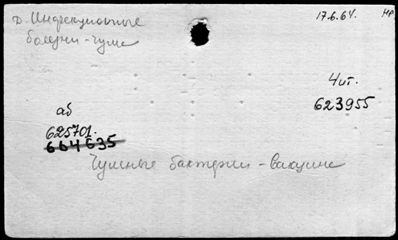 Д. Инфекционные
болезни - чума
17.6.64. НР
Чит.
623955
аб
625701.
664635
Чумные бактерии - вакцине